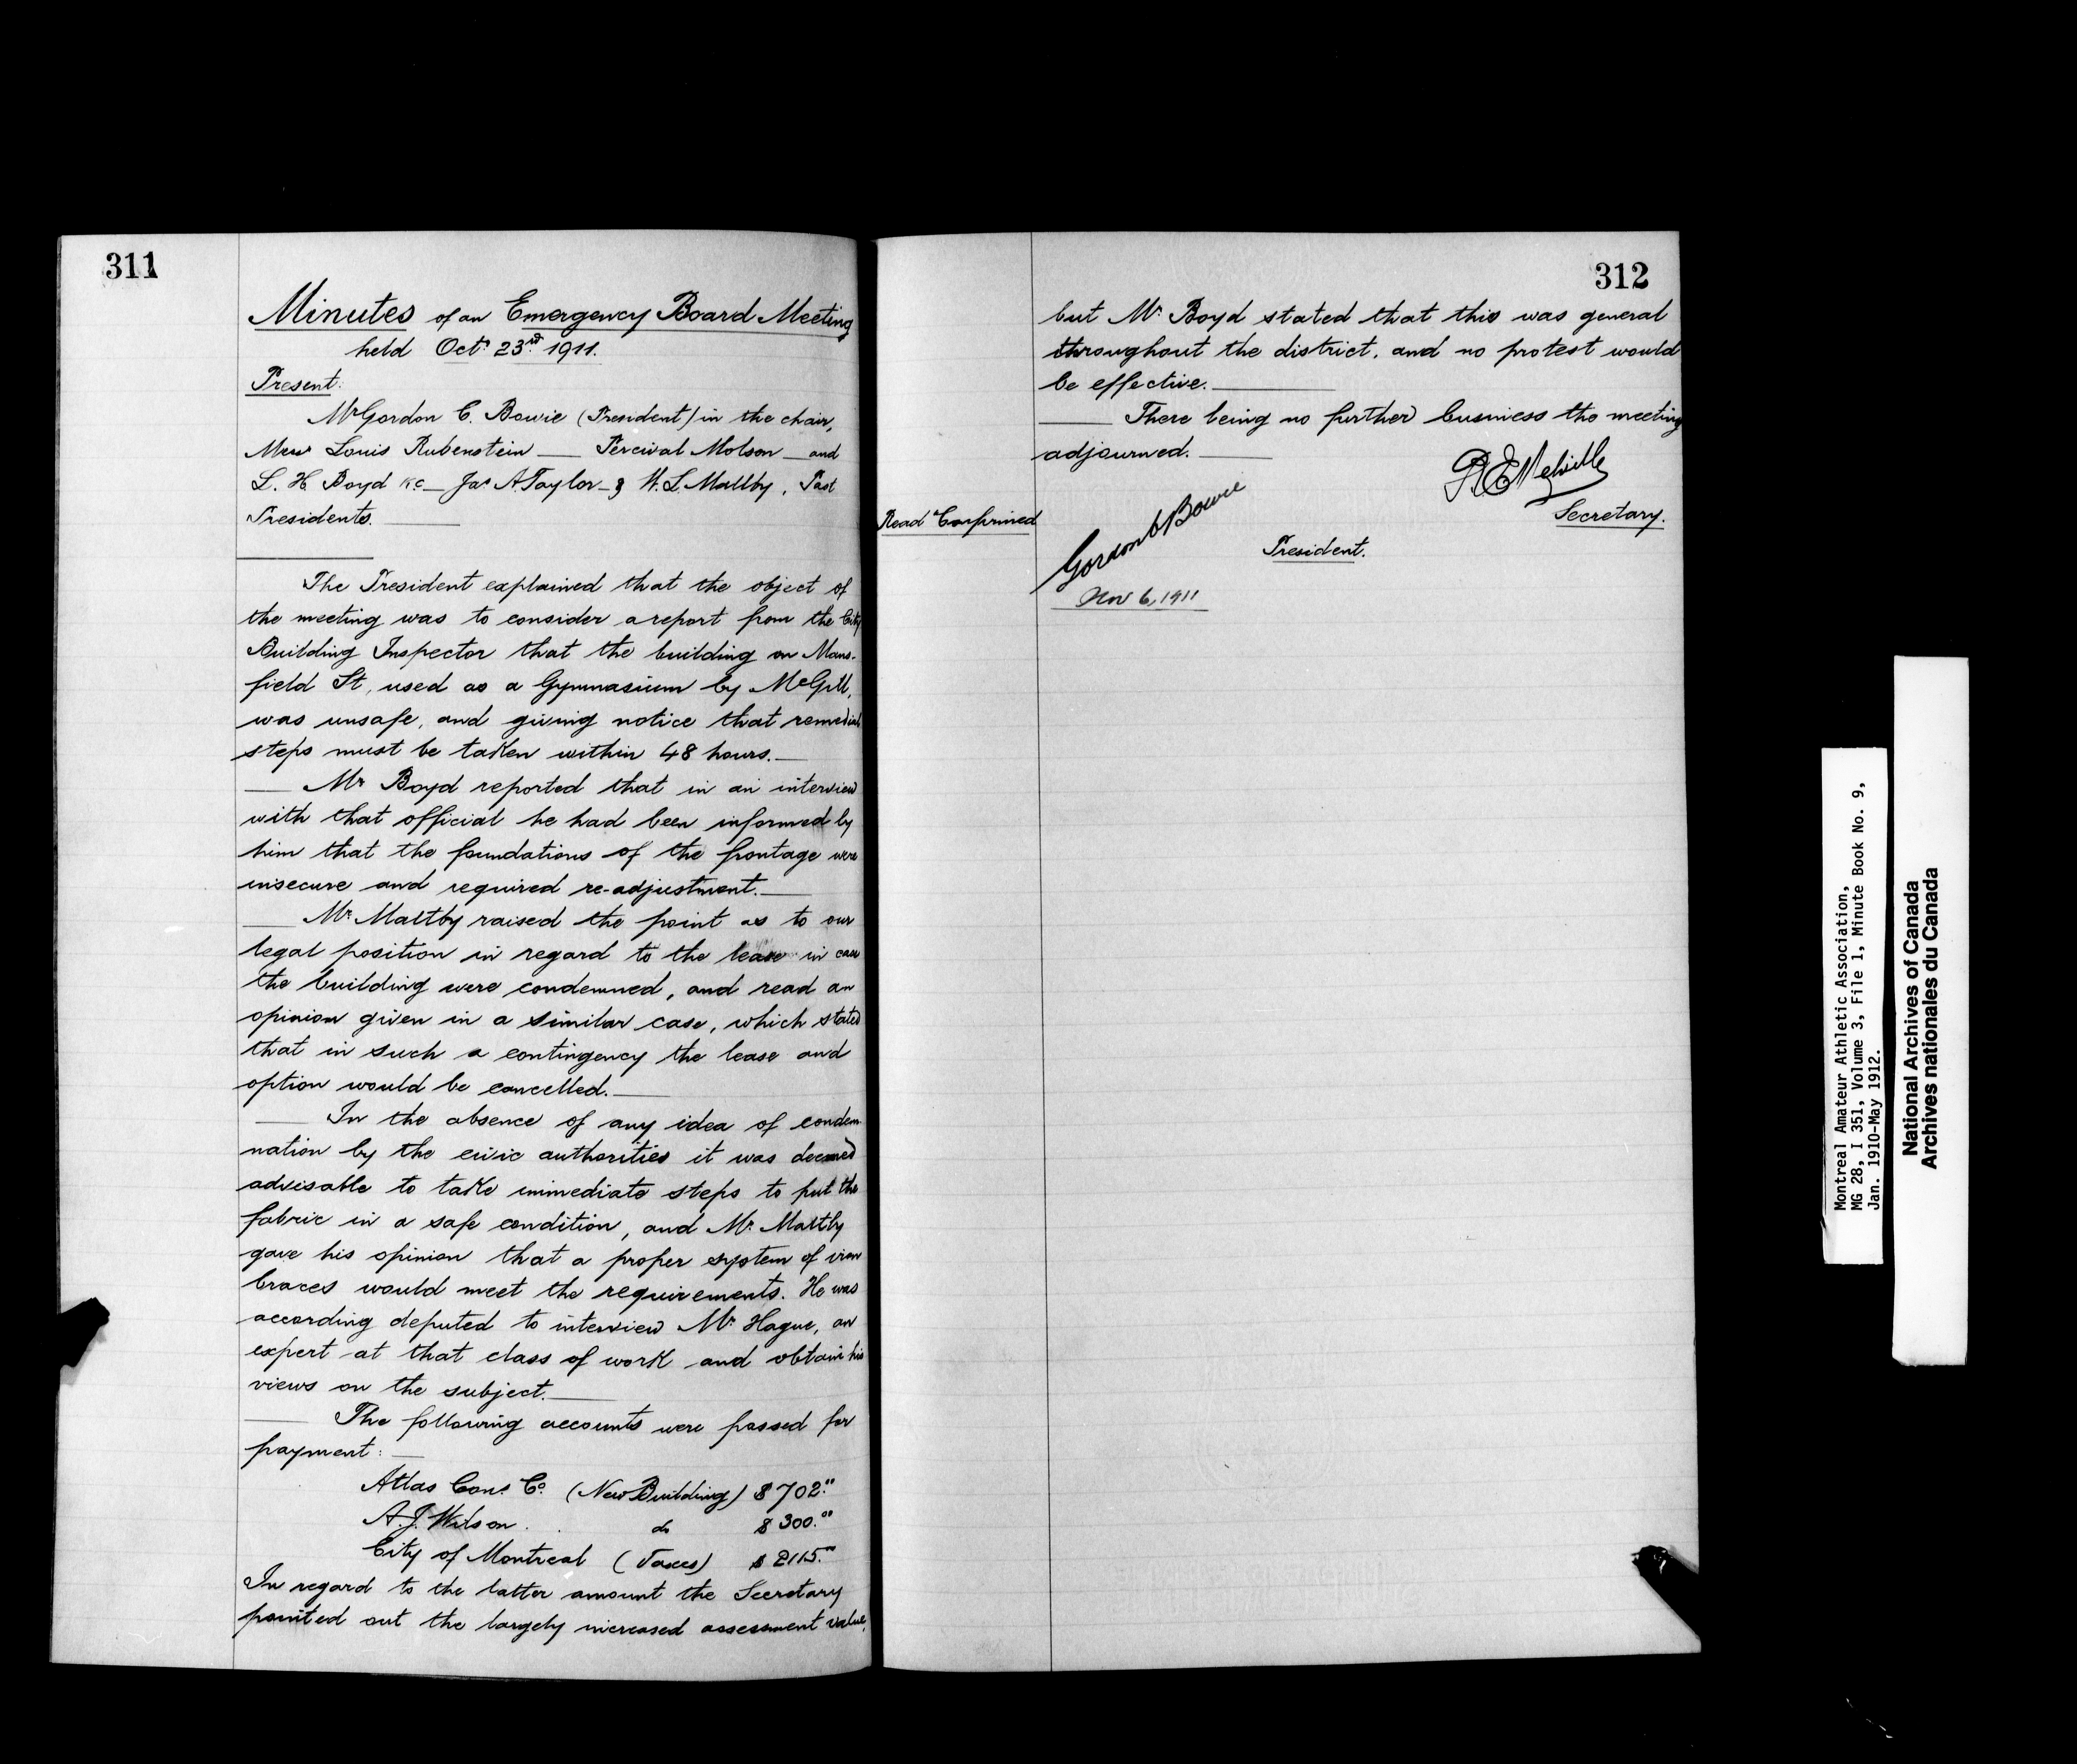 311
Minutes of an Emergency Board Meeting
held Oct. 23rd 1911.
Present:
Mr Gordon C. Bowie (President) in the chair,
Messrs Louis Rubenstein — Percival Molson — and
L. H. Boyd K.C. — Jas A. Taylor — & W. L. Maltby, Past
Presidents.
The President explained that the object of
the meeting was to consider a report from the City
Building Inspector that the building on Mans-
field St, used as a Gymnasium by McGill,
was unsafe, and giving notice that remedial
steps must be taken within 48 hours.—
Mr Boyd reported that in an interview
with that official he had been informed by
him that the foundations of the frontage were
insecure and required re-adjustment.—
Mr. Maltby raised the point as to our
legal position in regard to the lease in case
the building were condemned, and read an
opinion given in a similar case, which stated
that in such a contingency the lease and
option would be cancelled.—
In the absence of any idea of condem-
nation by the civic authorities it was deemed
advisable to take immediate steps to put the
fabric in a safe condition, and Mr. Maltby
gave his opinion that a proper system of iron
braces would meet the requirements. He was
according deputed to interview Mr. Hague, an
expert at that class of work and obtain his
views on the subject.—
The following accounts were passed for
payment:—
Atlas Cons. Co. (New Building) $702.00
A. J. Wilson . . do $300.00
City of Montreal (Taxes) $2115.00
In regard to the latter amount the Secretary
pointed out the largely increased assessment value,
312
but Mr. Boyd stated that this was general
throughout the district, and no protest would
be effective.—
There being no further business the meeting
adjourned.—
P.E. Melville
Secretary.
Read & Confirmed
Gordon C Bowie
President.
Nov 6, 1911
Montreal Amateur Athletic Association,
MG 28, I 351, Volume 3, File 1, Minute Book No. 9,
Jan. 1910-May 1912.
National Archives of Canada
Archives nationales du Canada